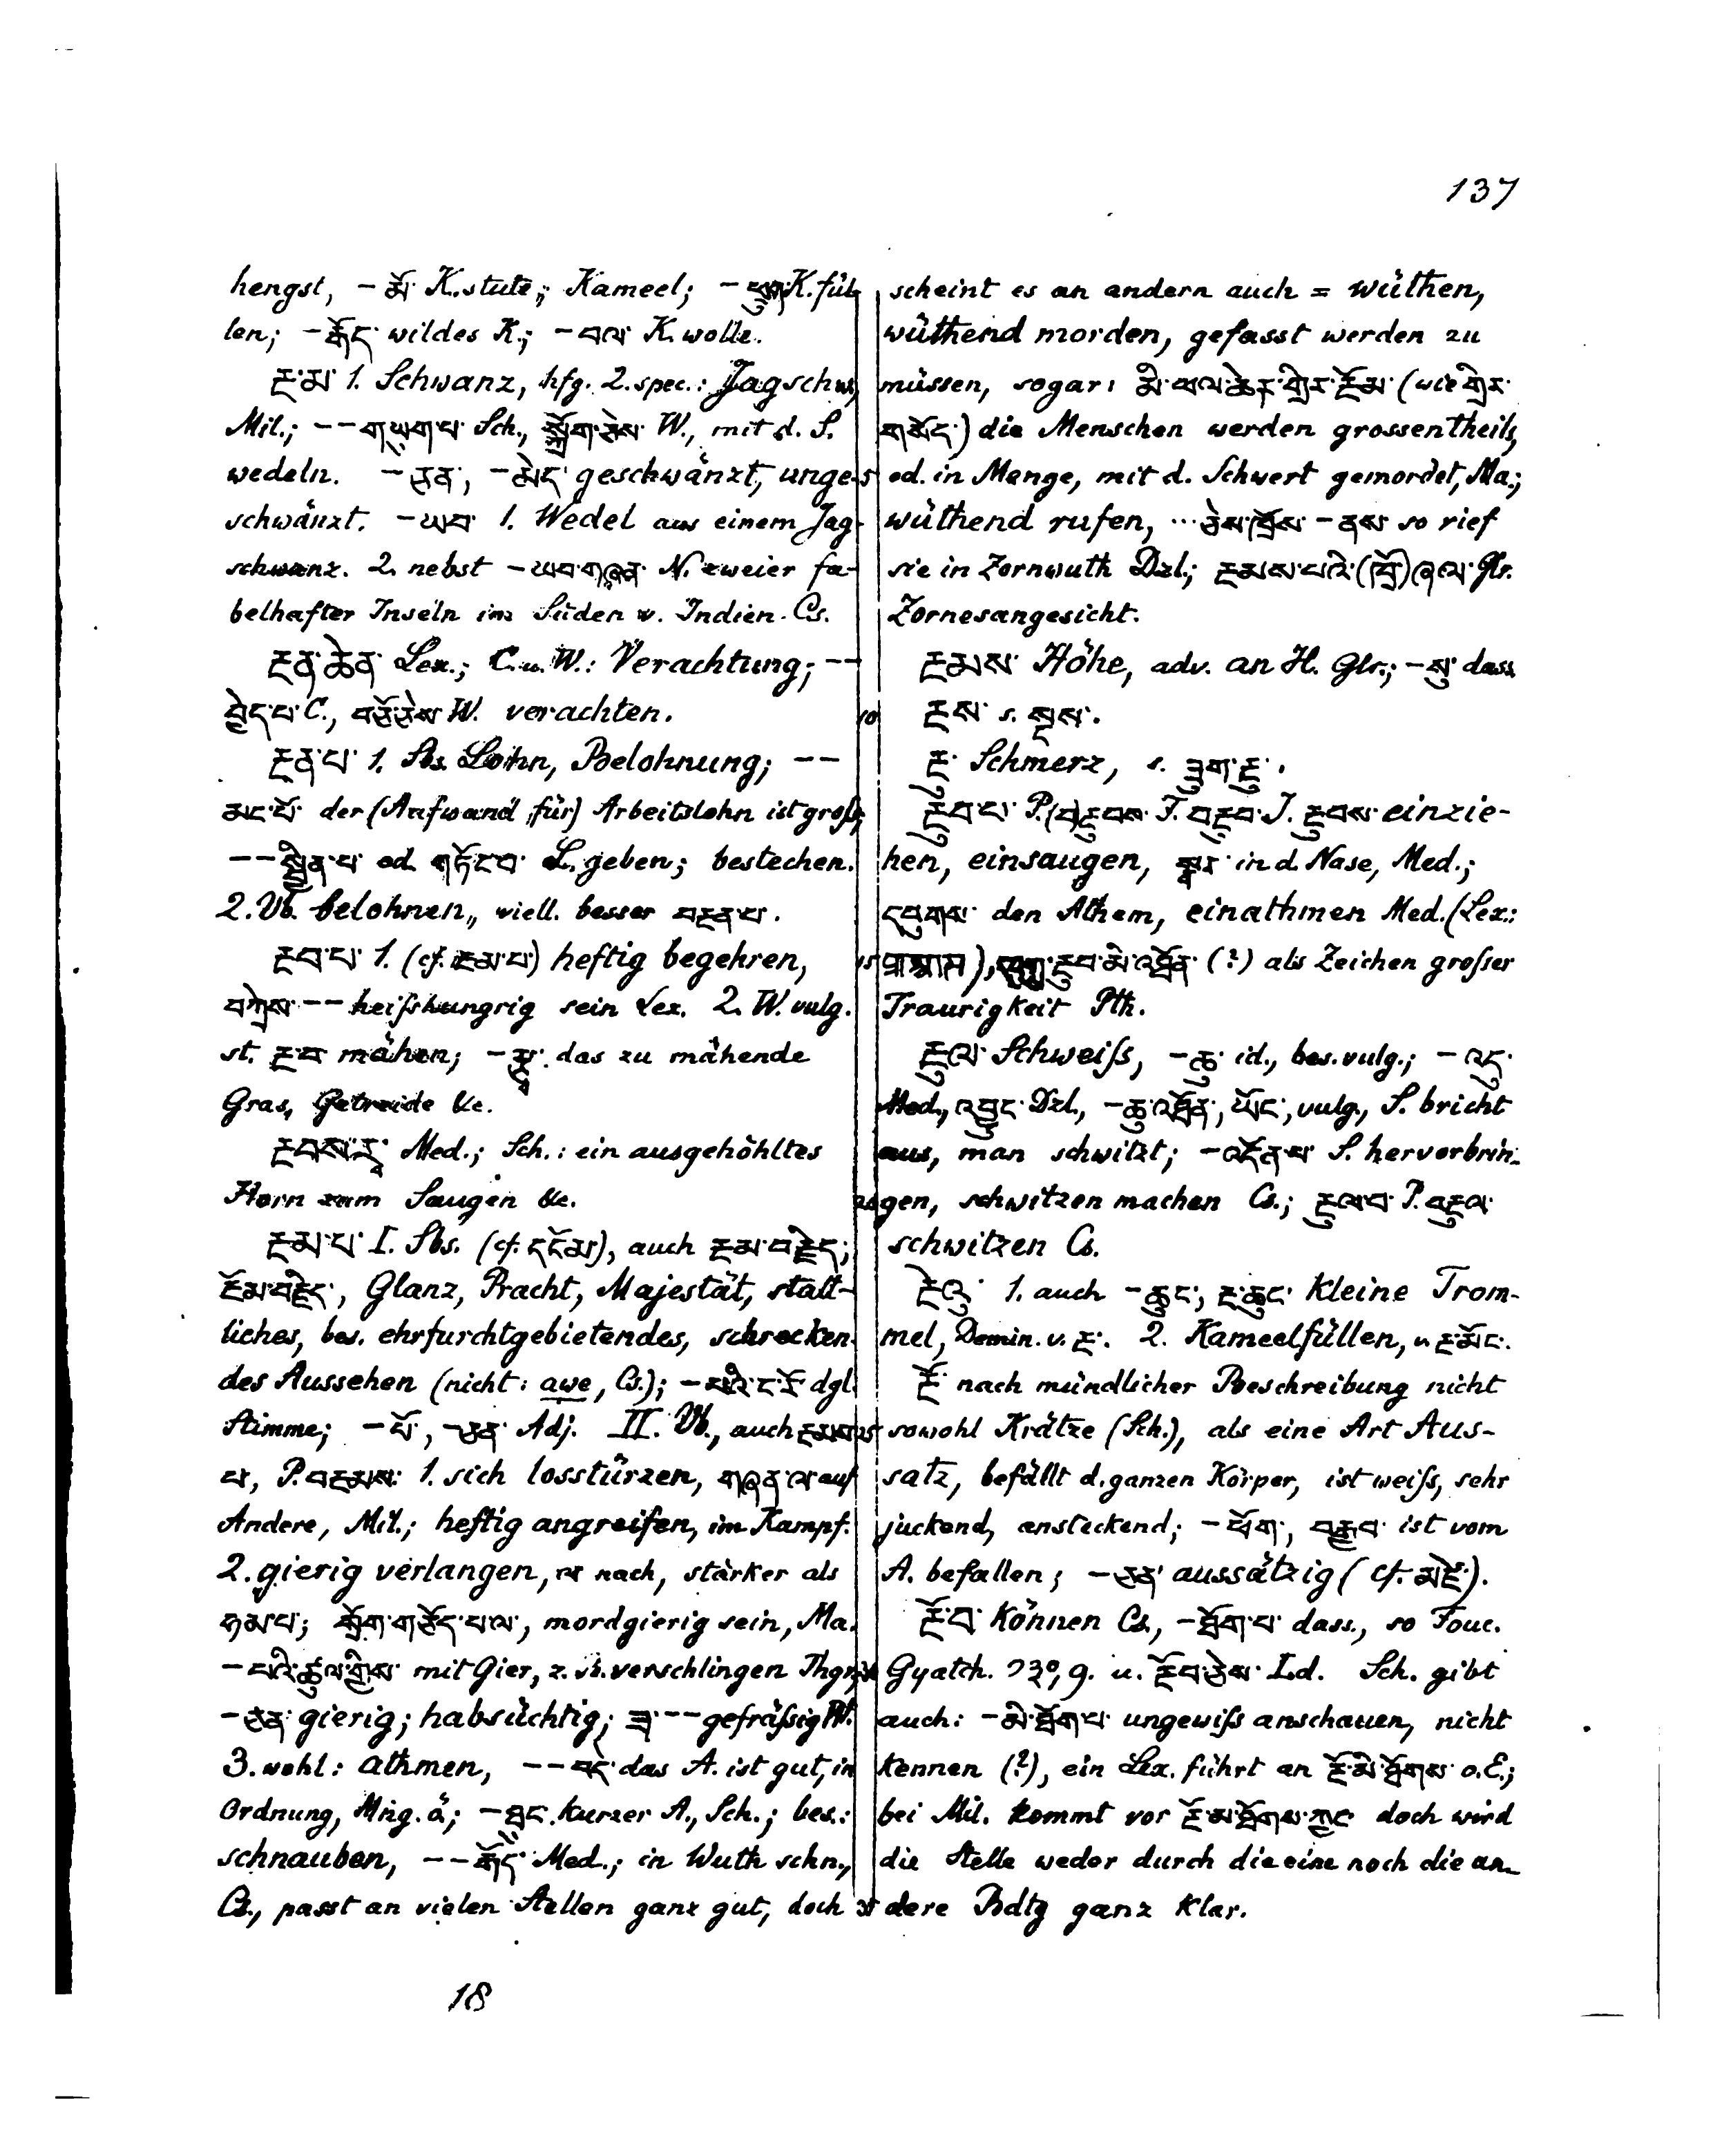 137
hengst, – མོ་ K.stute; Kameel; – K.fül-
len; – རྒོད་ wildes K.; – བལ་ K.wolle.
རྔ་མ་ 1. Schwanz, hfg. 2. spec.: Jagschw.,
Mil.; – – གཡུག་པ་ Sch., W., mit d. S.
wedeln. – ཅན་, – མེད་ geschwänzt, unge-
schwänzt. – ཡབ་ 1. Wedel aus einem Jag-
schwanz. 2. nebst – ཡབ་གཞན་ N. zweier fa-
belhafter Inseln im Süden v. Indien. Cs.
རྔན་ཆེན་ Lex.; C. u. W.: Verachtung; – –
བྱེད་པ་ C., བཅོ་ཅེས་ W. verachten.
རྔན་པ་ 1. Sbs. Lohn, Belohnung; – –
མང་པོ་ der (Aufwand für) Arbeitslohn ist groß;
– – སྦྱིན་པ་ od. གཏོང་བ་ L. geben; bestechen.
2. Vb. belohnen, viell. besser བརྔན་པ་.
རྔབ་པ་ 1. (cf. རྔམ་པ་) heftig begehren,
བཀྲེས་ – – heißhungrig sein Lex. 2. W. vulg.
st. རྔ་བ་ mähen; – das zu mähende
Gras, Getreide &c.
རྔབས་རུ་ Med.; Sch.: ein ausgehöhltes
Horn zum Saugen &c.
རྔམ་པ་ I. Sbs. (cf. དངོམ་), auch རྔམ་བརྗིད་;
རྔོམ་བརྗིད་, Glanz, Pracht, Majestät, statt-
liches, bes. ehrfurchtgebietendes, schrecken-
des Aussehen (nicht: awe, Cs.); – པའི་ང་རོ་ dgl.
Stimme; – པོ་, – ཅན་ Adj. II. Vb., auch རྔམས་
པ་, P. བརྔམས་ 1. sich losstürzen, གཞན་ལ་ auf
Andere, Mil.; heftig angreifen, im Kampf.
2. gierig verlangen, ལ་ nach, stärker als
ཧམ་པ་; སྲོག་གཅོད་པ་ལ་, mordgierig sein, Ma.
– པའི་ཚུལ་གྱིས་ mit Gier, z.B. verschlingen Thgr.;
– ཅན་ gierig; habsüchtig; ཟ་ – – gefräßig W.
3. wohl: athmen, – – བདེ་ das A. ist gut, in
Ordnung, Mng. ä; – ཐུང་ kurzer A., Sch.; bes.:
schnauben, – – Med.; in Wuth schn.,
Cs., passt an vielen Stellen ganz gut, doch
scheint es an andern auch = wüthen,
wüthend morden, gefasst werden zu
müssen, sogar: མི་ཕལ་ཆེར་གྲིར་རྔོམ་ (wie གྲིར་
གསོད་) die Menschen werden grossentheils,
od. in Menge, mit d. Schwert gemordet, Ma.;
wüthend rufen, ... ཅེས་སྨྲས་ – ནས་ so rief
sie in Zornwuth Dzl.; རྔམས་པའི་(ཁྲོ་)ཞལ་ Glr.
Zornesangesicht.
རྔམས་ Höhe, adv. an H. Glr.; – སུ་ dass
10 རྔས་ s. སྔས་.
རྔུ་ Schmerz, s. ཟུག་རྔུ་.
རྔུབ་པ་ P. (བ)རྔུབས་ F. བརྔུབ་ J. རྔུབས་ einzie-
hen, einsaugen, སྣར་ in d. Nase, Med.;
དབུགས་ den Athem, einathmen Med. (Lex.:
15 རྔུབ་མི་འཐོན་ (?) als Zeichen großer
Traurigkeit Pth.
རྔུལ་ Schweiß, – ཆུ་ id., bes. vulg.; – འདུ་
Med., འབྱུང་ Dzl., – ཆུ་འཐོན་, ཡོང་, vulg., S. bricht
aus, man schwitzt; – འདོན་པ་ S. hervorbrin-
gen, schwitzen machen Cs.; རྔུལ་བ་ P. བརྔུལ་
schwitzen Cs.
རྔེའུ་ 1. auch – ཆུང་, རྔ་ཆུང་ kleine Trom-
mel, Demin. v. རྔ་. 2. Kameelfüllen, v. རྔ་མོང་.
རྔོ་ nach mündlicher Beschreibung nicht
25 sowohl Krätze (Sch.), als eine Art Aus-
satz, befällt d. ganzen Körper, ist weiß, sehr
juckend, ansteckend; – ཕོག་, བརྒྱབ་ ist vom
A. befallen; – ཅན་ aussätzig (cf. མཛེ་).
རྔོ་བ་ können Cs., – ཐོག་པ་ dass., so Fouc.
Gyatch. ༡༣༠, 9. u. རྔོབ་ཅེས་ Ld. Sch. gibt
auch: – མི་ཐོག་པ་ ungewiß anschauen, nicht
kennen (?), ein Lex. führt an རྔོ་མི་ཐོགས་ o.E.;
bei Mil. kommt vor རྔོ་མ་ཐོགས་ཀྱང་ doch wird
die Stelle weder durch die eine noch die an-
35 dere Bdtg ganz klar.
18